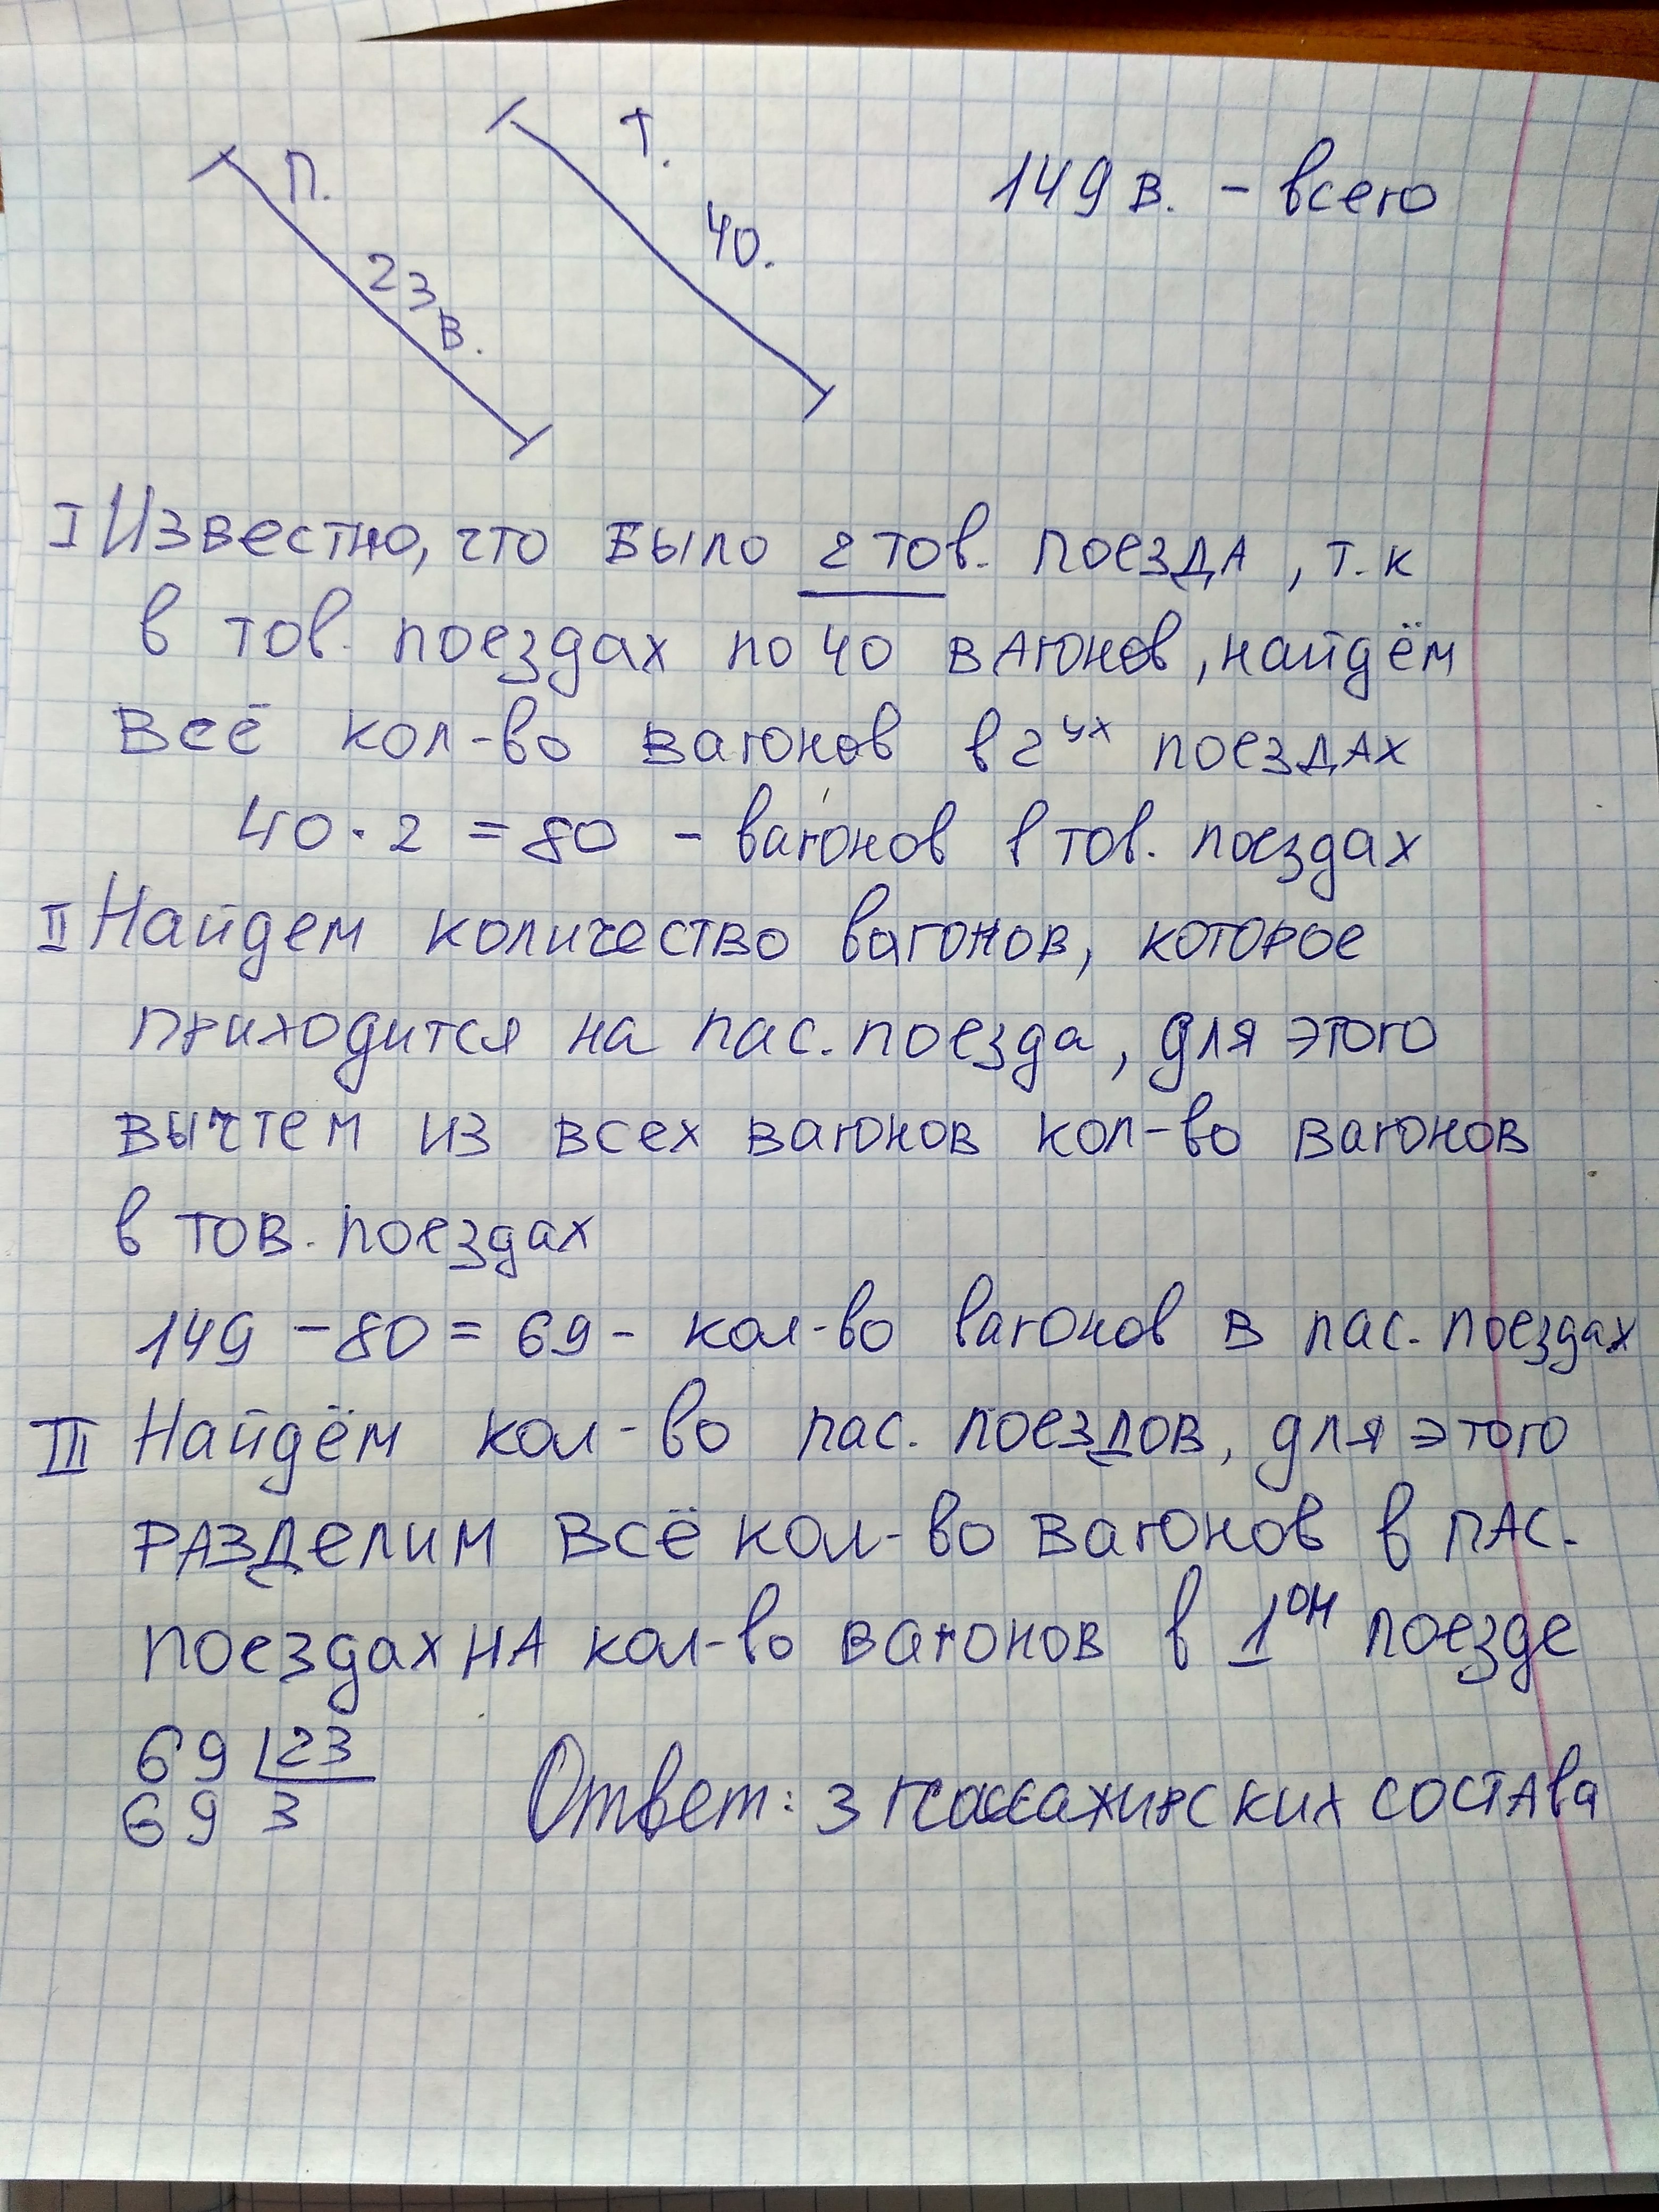 П.
23 в.
Т.
40.
149 в. - всего
I Известно, что было 2 тов. поезда, т.к
в тов. поездах по 40 вагонов, найдём
всё кол-во вагонов в 2ух поездах
40 · 2 = 80 - вагонов в тов. поездах
II Найдем количество вагонов, которое
приходится на пас. поезда, для этого
вычтем из всех вагонов кол-во вагонов
в тов. поездах
149 - 80 = 69 - кол-во вагонов в пас. поездах
III Найдём кол-во пас. поездов, для этого
разделим всё кол-во вагонов в пас.
поездах на кол-во вагонов в 1ом поезде
69 23
69 3
Ответ: 3 пассажирских состава